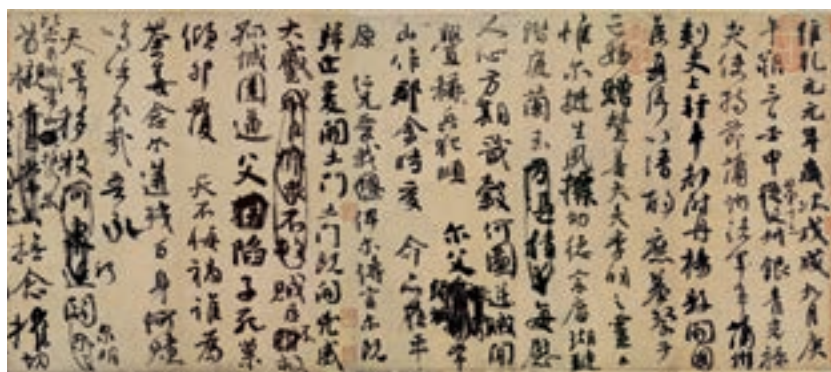 維乾元元年歲次戊戌九月庚
午朔三日壬申從父銀青光祿
夫使持節蒲州諸軍事蒲州
刺史上輕車都尉丹楊縣開國
侯真卿以清酌庶羞祭于
亡姪贈贊善大夫季明之靈曰
惟爾挺生夙標幼德宗廟瑚璉
階庭蘭玉每慰
人心方期戩穀何圖逆賊間
釁稱兵犯順爾父常
山作郡余時受命亦在平
原仁兄愛我俾爾傳言爾既
歸止爰開土門土門既開凶威
大蹙賊臣不救
孤城圍逼父陷子死巢
傾卵覆天不悔禍誰為
荼毒念爾遘殘百身何贖
嗚呼哀哉吾承
泉明
天澤移牧河關
首櫬撫念摧切